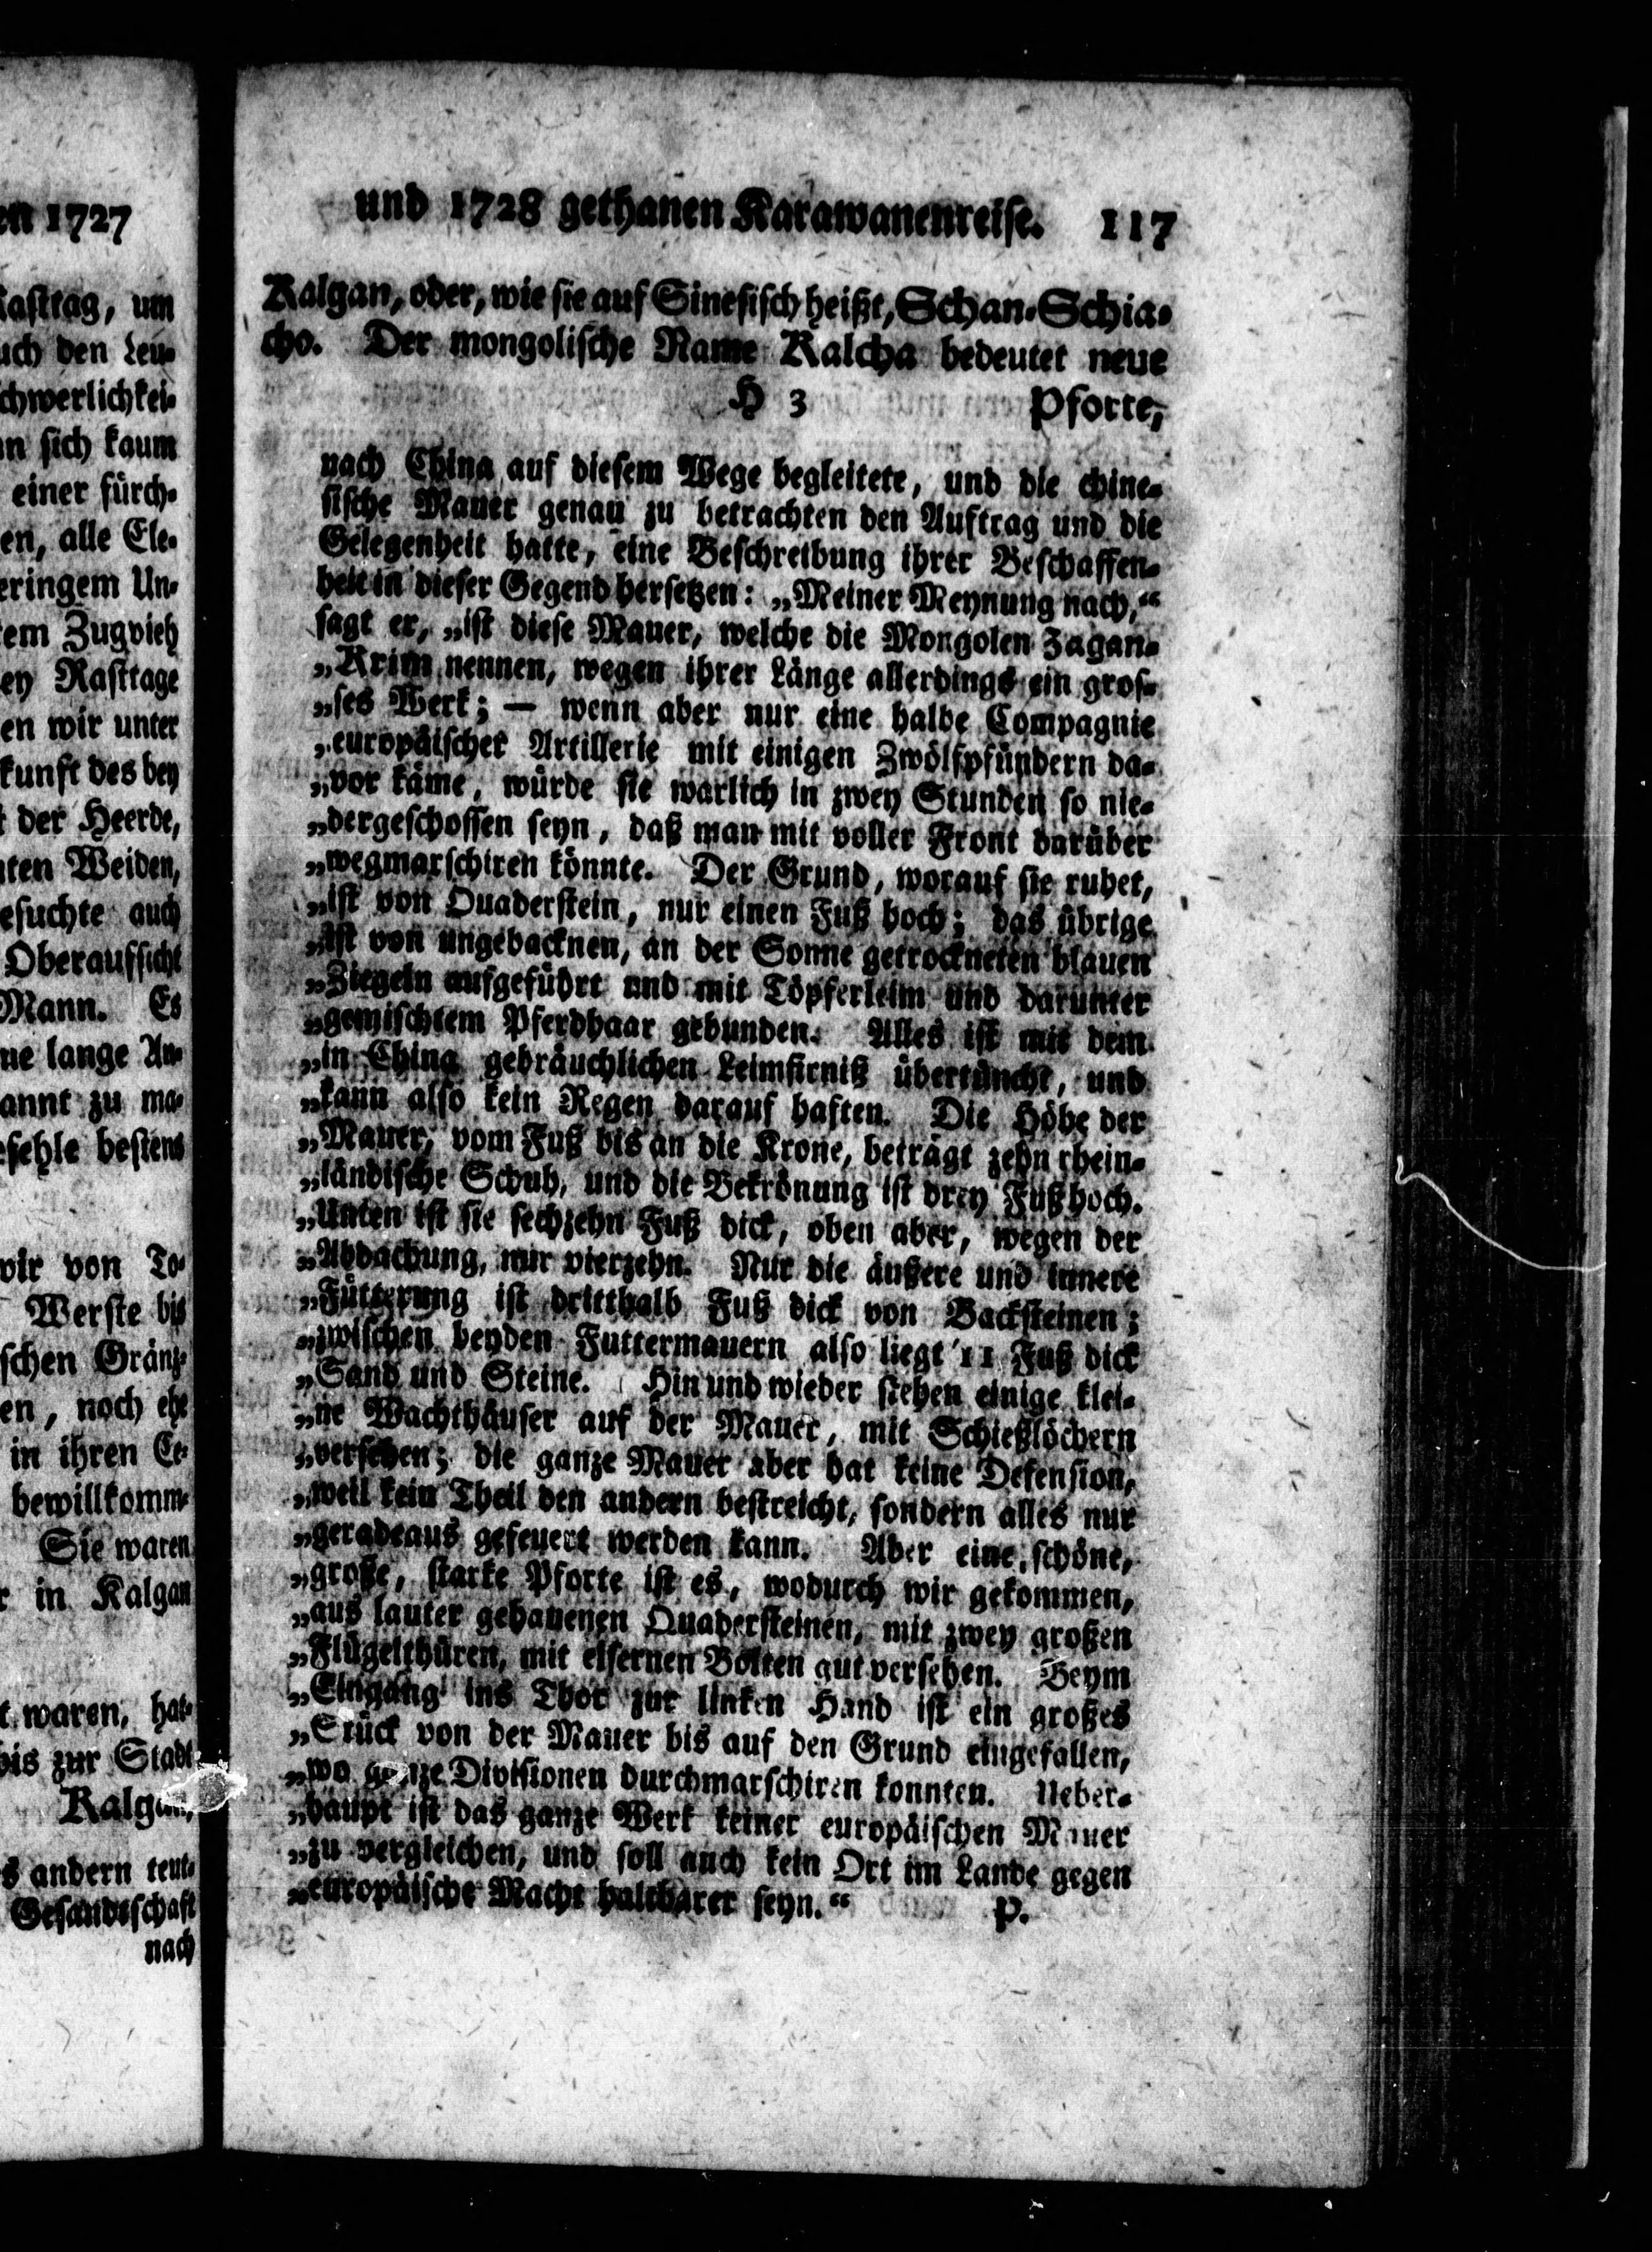 en 1727
asttag, um
uch den Leu-
chwerlichkei-
n sich kaum
einer fürch-
en, alle Ele-
eringem Un-
tem Zugvieh
ey Rasttage
en wir unter
kunft des bey
t der Heerde,
ten Weiden,
esuchte auch
Oberaufsicht
Mann. Es
ne lange An-
annt zu ma-
efehle bestens
wir von To-
Werste bis
schen Gränz-
en, noch ehe
in ihren Ce-
bewillkomm-
Sie waren
r in Kalgan
t waren, hat-
bis zur Stadt
Kalgan,
s andern teut-
Gesandtschaft
nach
und 1728 gethanen Karawanenreise. 117
Kalgan, oder, wie sie auf Sinesisch heißt, Schan-Schia-
cho. Der mongolische Name Kalcha bedeutet neue
H 3 Pforte,
nach China auf diesem Wege begleitete, und die chine-
sische Mauer genau zu betrachten den Auftrag und die
Gelegenheit hatte, eine Beschreibung ihrer Beschaffen-
heit in dieser Gegend hersetzen: „Meiner Meynung nach,“
sagt er, „ist diese Mauer, welche die Mongolen Zagan-
„Krim nennen, wegen ihrer Länge allerdings ein gros-
„ses Werk; — wenn aber nur eine halbe Compagnie
„europäischer Artillerie mit einigen Zwölfpfündern da-
„vor käme, würde sie warlich in zwey Stunden so nie-
„dergeschossen seyn, daß man mit voller Front darüber
„wegmarschiren könnte. Der Grund, worauf sie ruhet,
„ist von Quaderstein, nur einen Fuß hoch; das übrige
„ist von ungebacknen, an der Sonne getrockneten blauen
„Ziegeln aufgeführt und mit Töpferleim und darunter
„gemischtem Pferdhaar gebunden. Alles ist mit dem
„in China gebräuchlichen Leimfirniß übertüncht, und
„kann also kein Regen darauf haften. Die Höhe der
„Mauer, vom Fuß bis an die Krone, beträgt zehn rhein-
„ländische Schuh, und die Bekrönung ist drey Fuß hoch.
„Unten ist sie sechzehn Fuß dick, oben aber, wegen der
„Abdachung, nur vierzehn. Nur die äußere und innere
„Fütterung ist dritthalb Fuß dick von Backsteinen;
„zwischen beyden Futtermauern also liegt 11 Fuß dick
„Sand und Steine. Hin und wieder stehen einige klei-
„ne Wachthäuser auf der Mauer, mit Schießlöchern
„versehen; die ganze Mauer aber hat keine Defension,
„weil kein Theil den andern bestreicht, sondern alles nur
„geradeaus gefeuert werden kann. Aber eine schöne,
„große, starke Pforte ist es, wodurch wir gekommen,
„aus lauter gehauenen Quadersteinen, mit zwey großen
„Flügelthüren, mit eisernen Bolten gut versehen. Beym
„Eingang ins Thor zur linken Hand ist ein großes
„Stück von der Mauer bis auf den Grund eingefallen,
„wo ganze Divisionen durchmarschiren konnten. Ueber-
„haupt ist das ganze Werk keiner europäischen Mauer
„zu vergleichen, und soll auch kein Ort im Lande gegen
„europäische Macht haltbarer seyn.“ P.